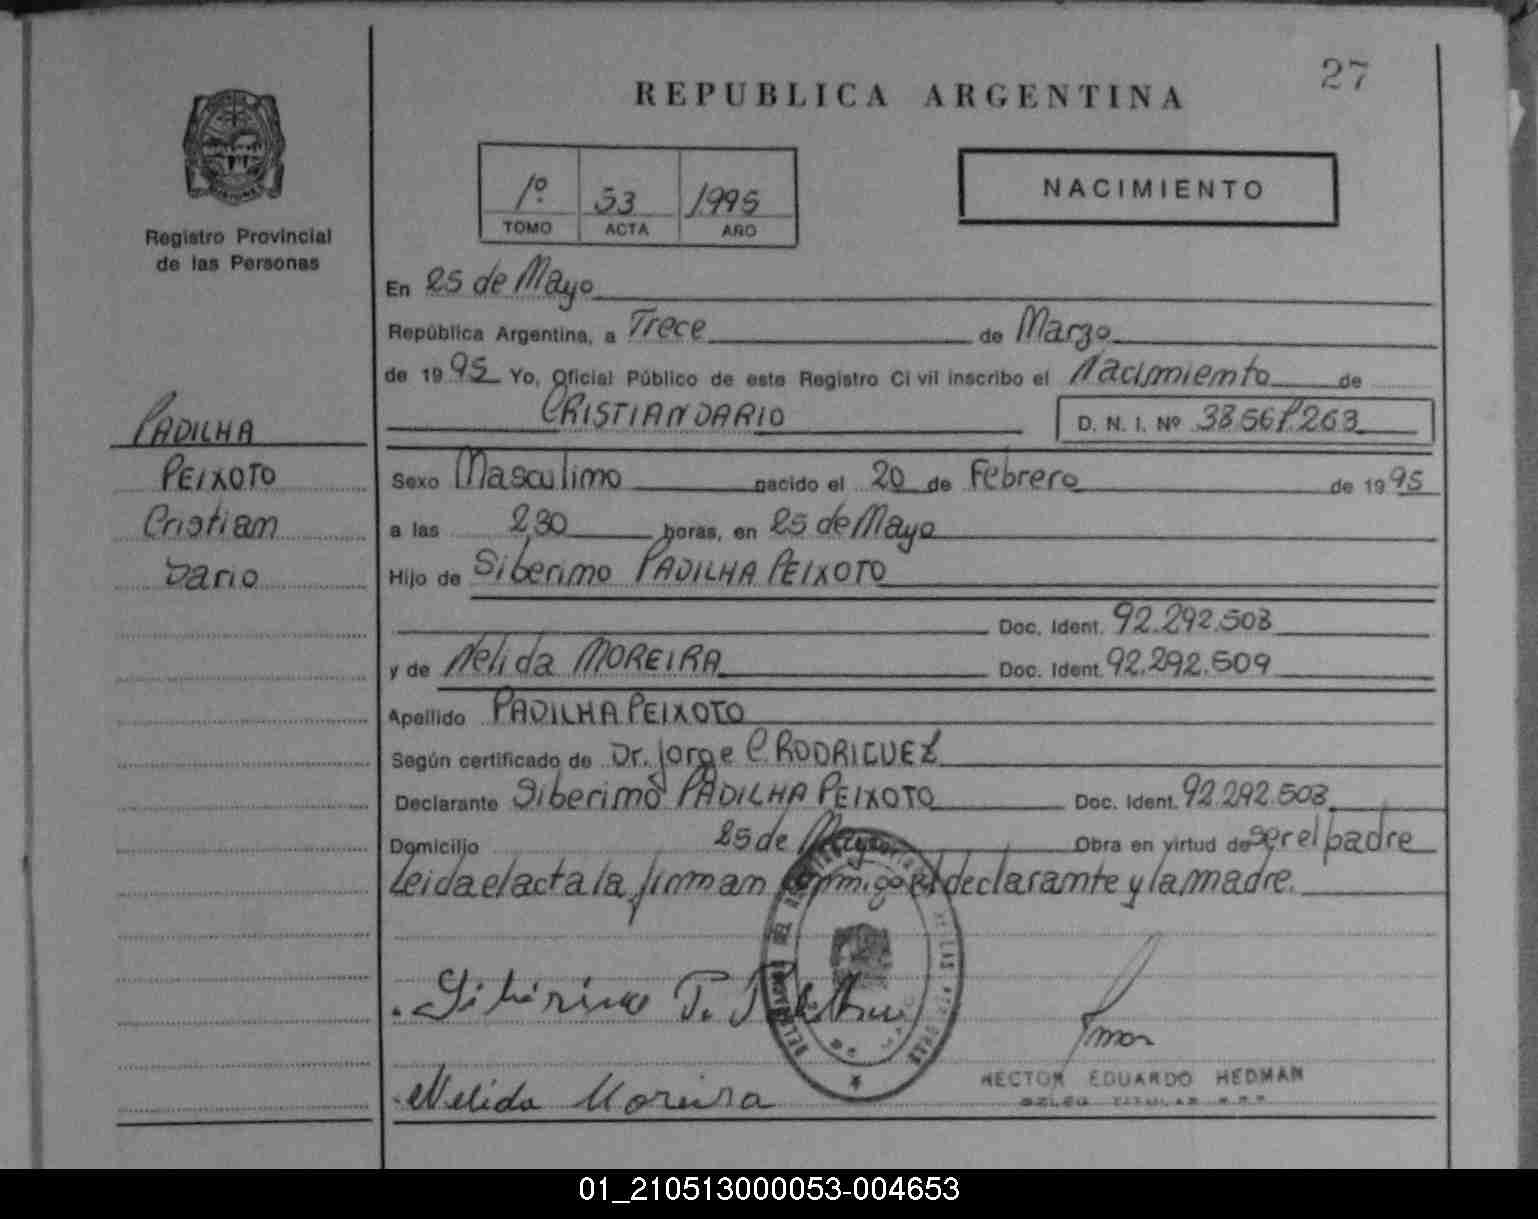 27
REPUBLICA ARGENTINA
1º 53 1995
TOMO ACTA AÑO
NACIMIENTO
Registro Provincial
de las Personas
En 25 de Mayo
República Argentina, a Trece de Marzo
de 1995 Yo, Oficial Público de este Registro Civil inscribo el Nacimiento de
CRISTIAN DARIO D. N. I. Nº
PADILHA
PEIXOTO
Cristian
Dario
Sexo Masculino nacido el 20 de Febrero de 1995
a las 2,30 horas, en 25 de Mayo
Hijo de Siberino PADILHA PEIXOTO
Doc. Ident. 92.292.503
y de Nelida MOREIRA Doc. Ident. 92.292.509
Apellido PADILHA PEIXOTO
Según certificado de Dr. Jorge C. RODRIGUEZ
Declarante Siberino PADILHA PEIXOTO Doc. Ident. 92.292.503
Domicilio 25 de Mayo Obra en virtud de ser el padre
Leida el acta la firman conmigo el declarante y la madre.
Nelida Moreira
HECTOR EDUARDO HEDMAN
01_210513000053-004653